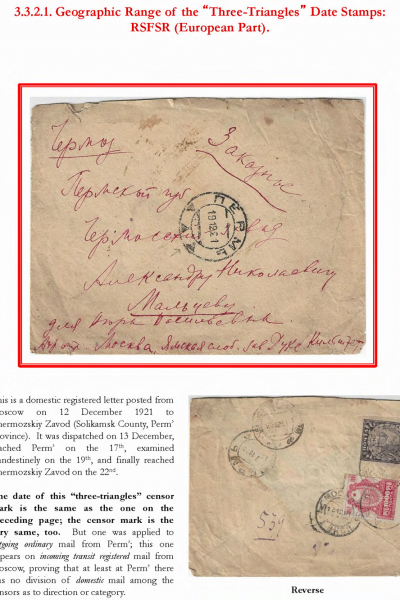 3.3.2.1. Geographic Range of the “Three-Triangles” Date Stamps:
RSFSR (European Part).
Чермоз
Заказное
Пермской губ
ПЕРМЬ
19 12 21
Александру Николаевичу
Мальцеву
для
Москва
his is a domestic registered letter posted from
oscow on 12 December 1921 to
hermozskiy Zavod (Solikamsk County, Perm’
ovince). It was dispatched on 13 December,
ached Perm’ on the 17th, examined
andestinely on the 19th, and finally reached
hermozskiy Zavod on the 22nd.
he date of this “three-triangles” censor
ark is the same as the one on the
eceding page; the censor mark is the
ery same, too. But one was applied to
tgoing ordinary mail from Perm’; this one
pears on incoming transit registered mail from
oscow, proving that at least at Perm’ there
as no division of domestic mail among the
nsors as to direction or category.
Reverse